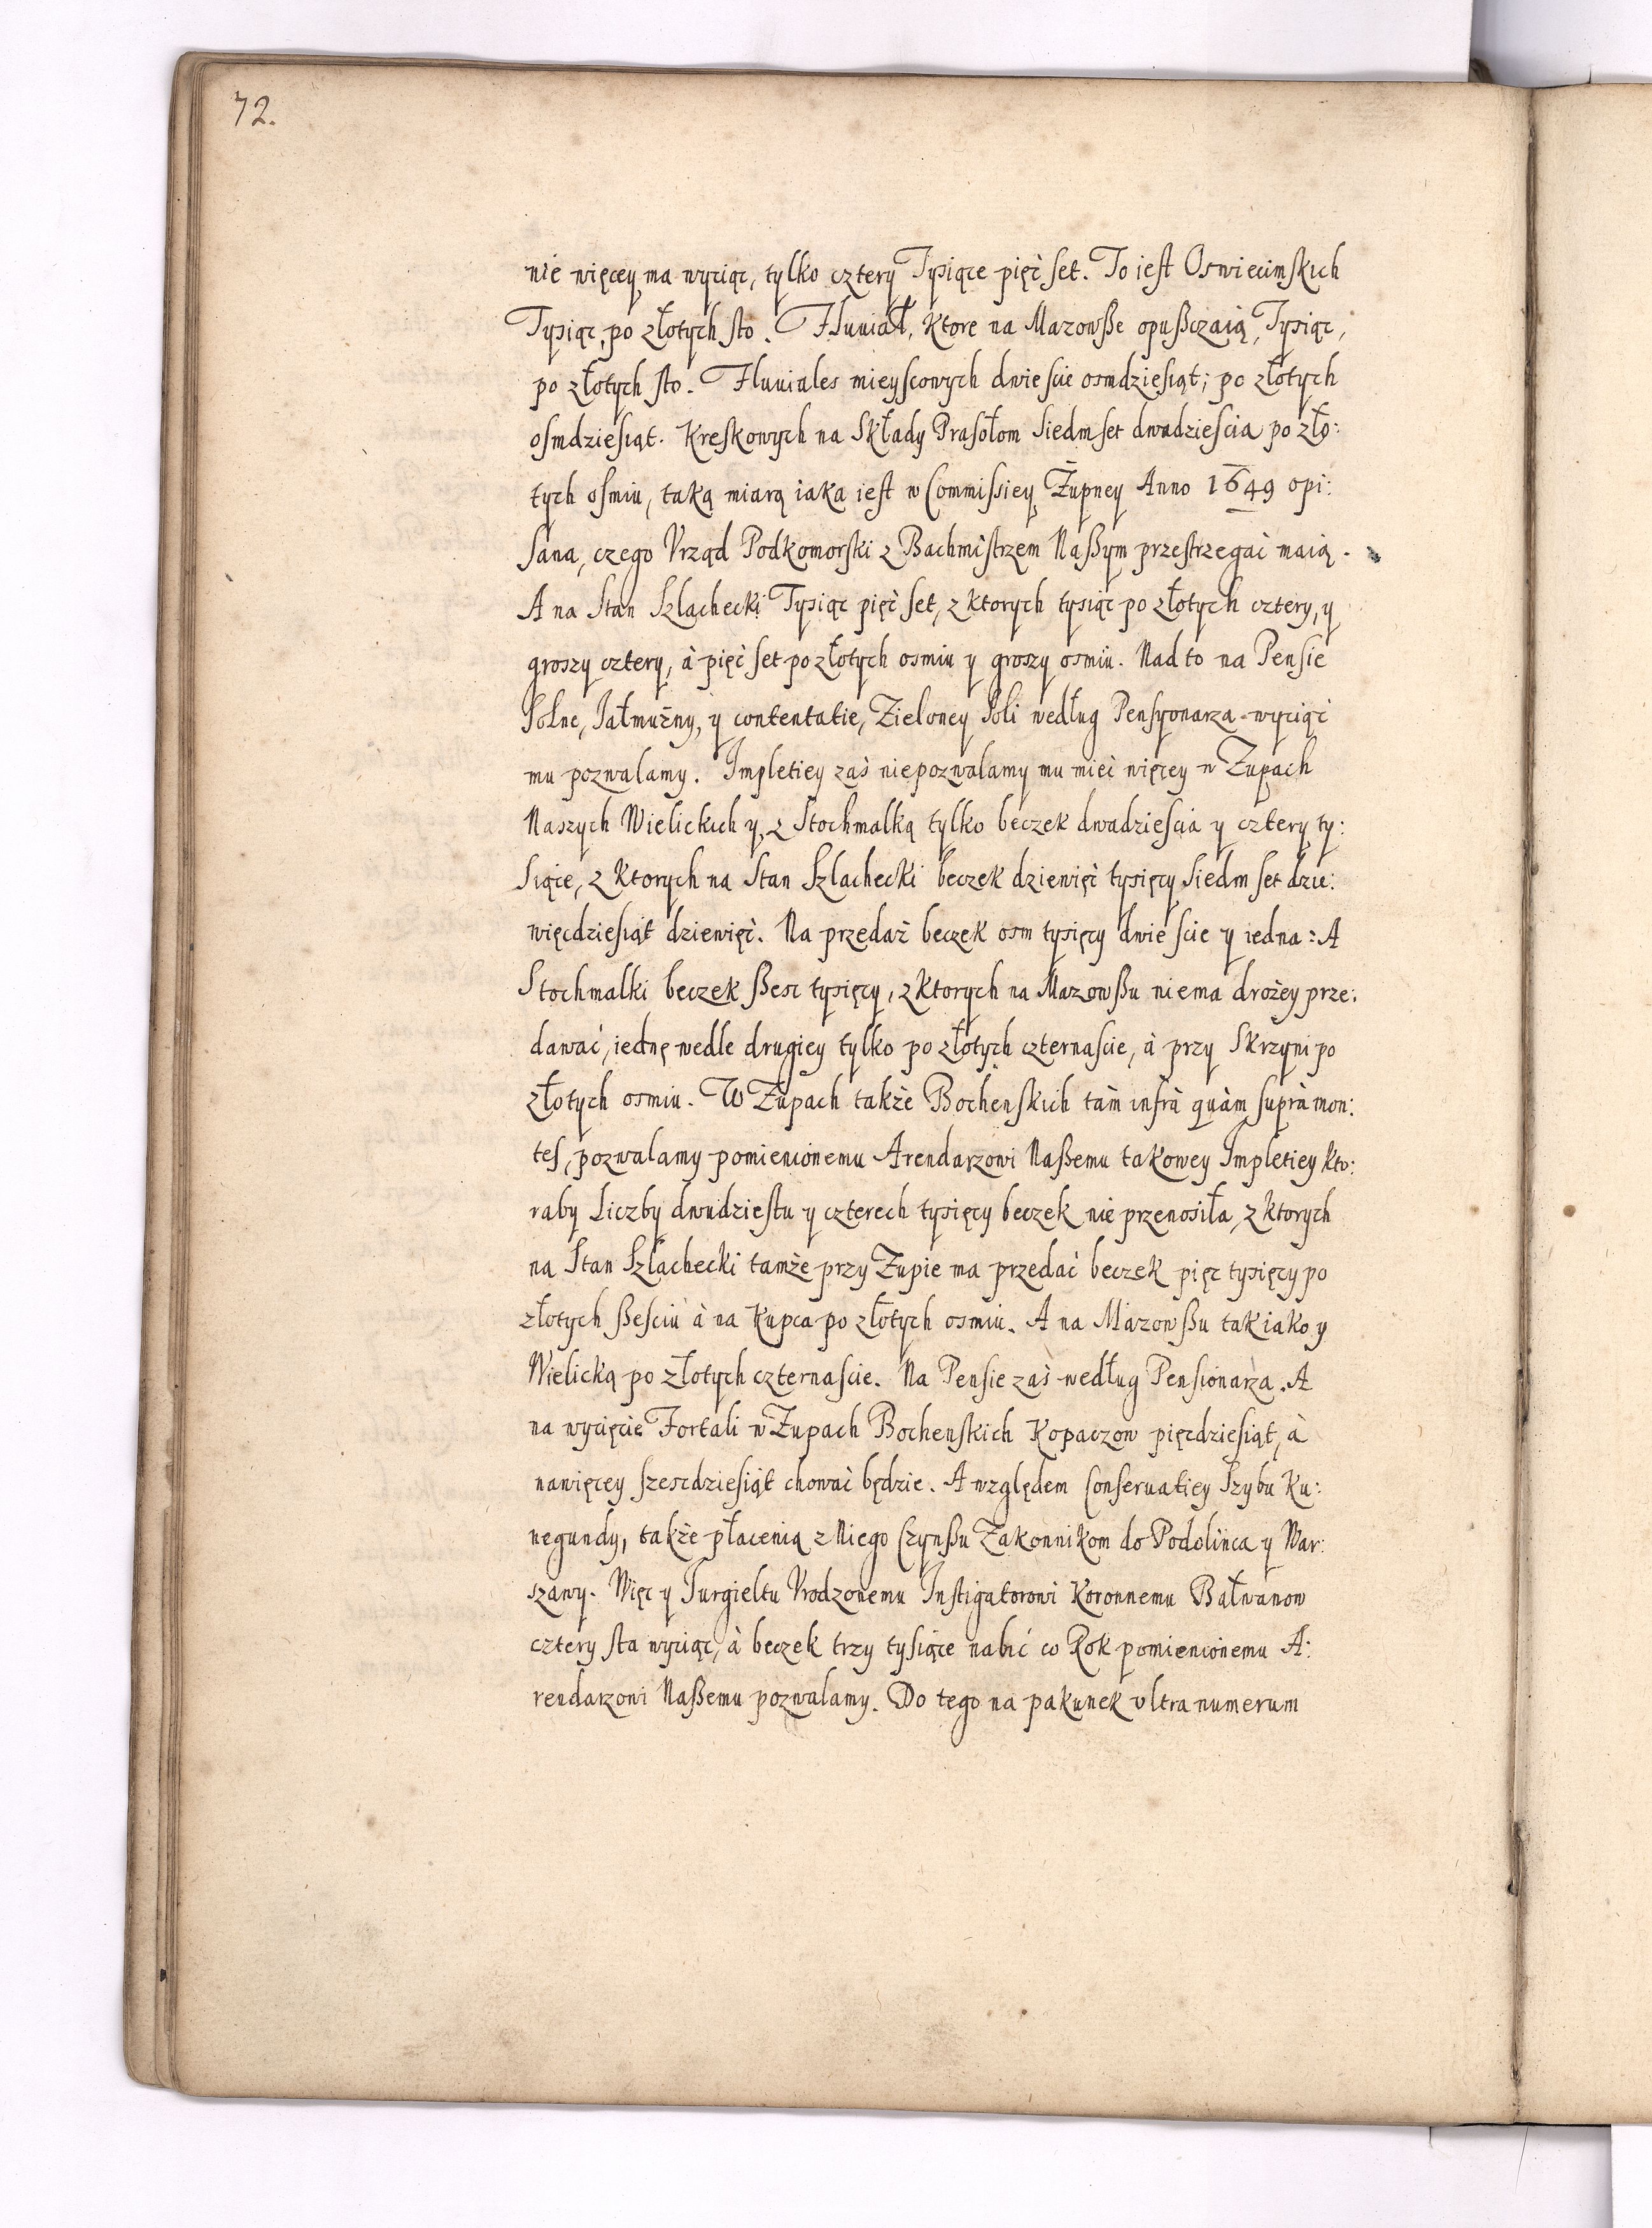 72.
nie więcey ma wyciąc, tylko cztery Tysiące pięć set. To iest Oswiecimskich
Tysiąc, po złotych sto. Fluuiał, ktore na Mazowsze opuszczaią, Tysiąc,
po złotych sto. Fluuiales mieyscowych dwiescie osmdziesiąt; po złotych
osmdziesiąt. Kreskowych na Składy Prasołom Siedmset dwadziescia po zło:
tych osmiu, taką miarą iaka iest w Commissiey Żupney Anno 1649 opi:
sana, czego Vrząd Podkomorski z Bachmistrzem Naszym przestrzegać maią.
A na Stan Szlachecki Tysiąc pięć set, z ktorych tysiąc po złotych cztery, y
groszy cztery, à pięć set po złotych osmiu y groszy osmiu. Nad to na Pensie
Solne, Iałmużny, y contentatie, Zieloney Soli według Pensyonarza wyciąć
mu pozwalamy. Impletiey zaś niepozwalamy mu mieć więcey w Żupach
Naszych Wielickich y z Stochmalką tylko beczek dwadziescia y cztery ty:
siące, z ktorych na Stan Szlachecki beczek dziewięć tysięcy siedm set dzie:
więcdziesiąt dziewięć. Na przedaż beczek osm tysięcy dwie scie y iedna: A
Stochmalki beczek szesc tysięcy, z ktorych na Mazowszu niema drożey prze:
dawać, iednę wedle drugiey tylko po złotych czternascie, à przy Skrzyni po
złotych osmiu. W Żupach także Bochenskich tàm infrà quàm suprà mon:
tes, pozwalamy pomienionemu Arendarzowi Naszemu takowey Impletiey kto:
raby Liczby dwudziestu y czterech tysięcy beczek nie przenosiła, z ktorych
na Stan Szlachecki tamże przy Żupie ma przedać beczek pięc tysięcy po
złotych szesciu à na Kupca po złotych osmiu. A na Mazowszu tak iako y
Wielicką po złotych czternascie. Na Pensie zaś według Pensionarza. A
na wycięcie Fortali w Żupach Bochenskich Kopaczow pięcdziesiąt, à
nawięcey szescdziesiąt chować będzie. A względem Conseruatiey Szybu Ku:
negundy, także płacenią z Niego Czynszu Zakonnikom do Podolinca y War:
szawy. Więc y Iurgieltu Vrodzonemu Instigatorowi Koronnemu Bałwanow
cztery sta wyciąc, à beczek trzy tysiące nabić co Rok pomienionemu A:
rendarzowi Naszemu pozwalamy. Do tego na pakunek vltra numerum